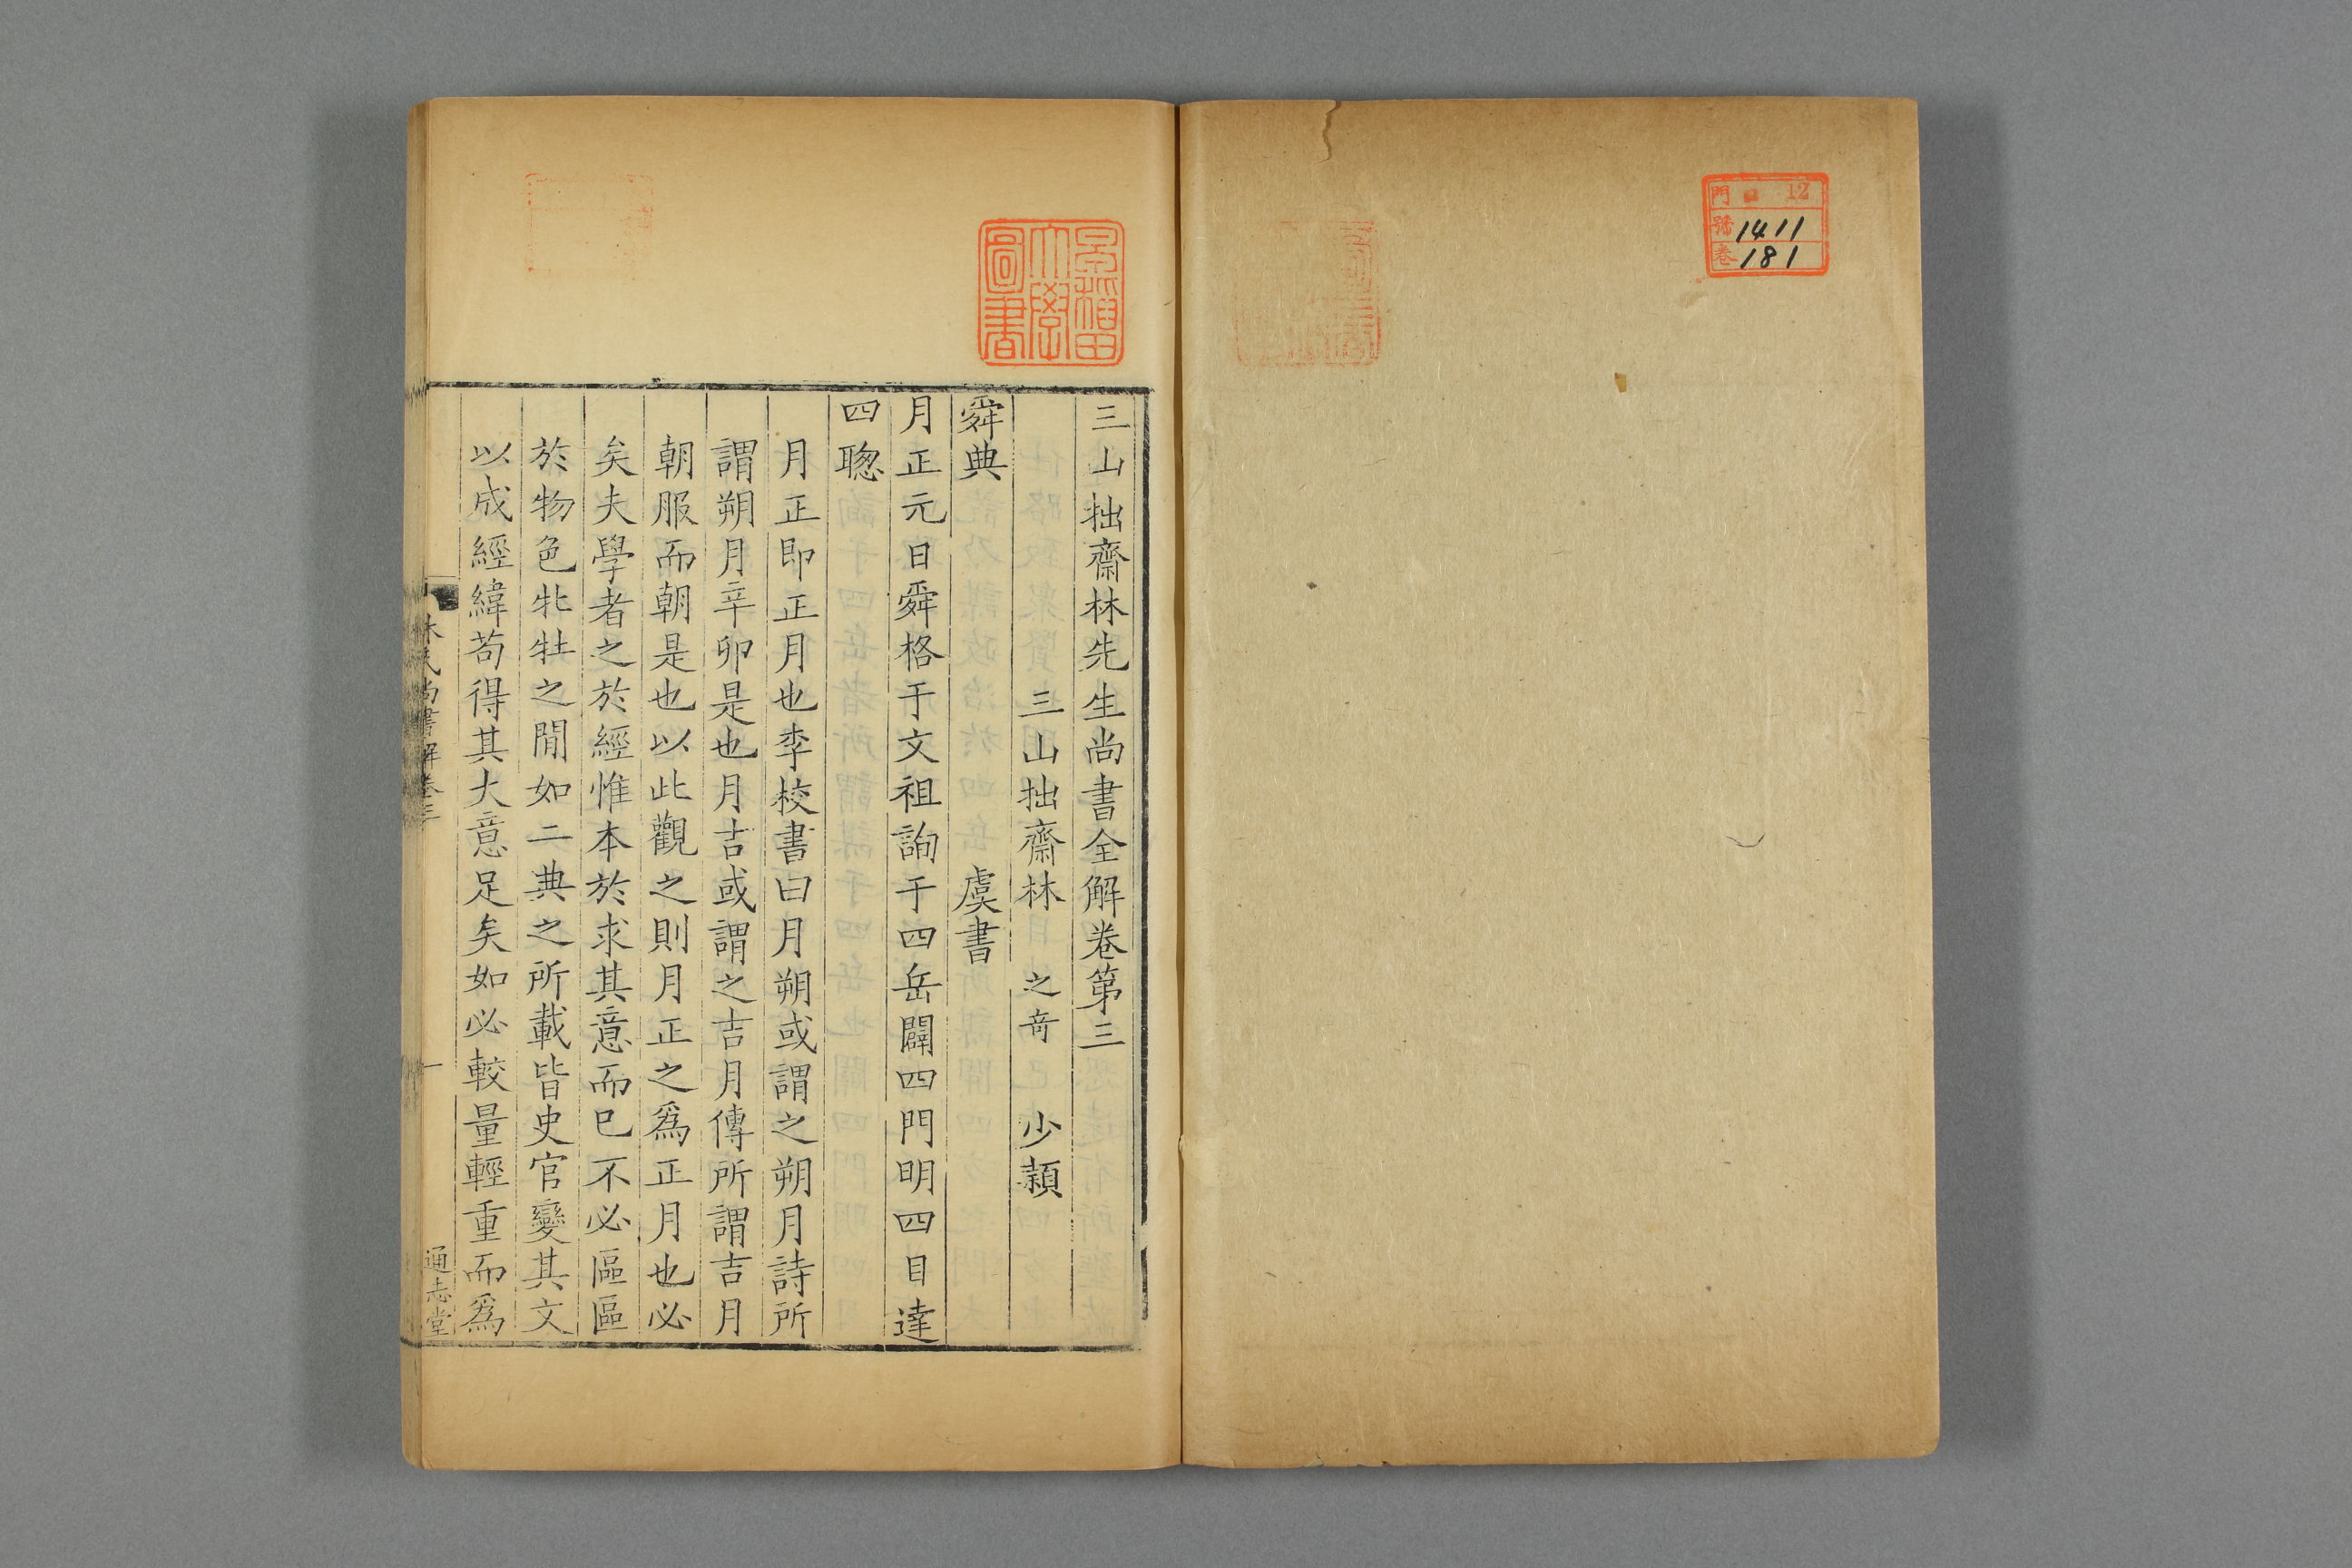 門 12
號 1411
卷 181
早稲田大學圖書
三山拙齋林先生尚書全解卷第三
三山拙齋林 之奇 少穎
舜典 虞書
月正元日舜格于文祖詢于四岳闢四門明四目達
四聰
月正即正月也李校書曰月朔或謂之朔月詩所
謂朔月辛卯是也月吉或謂之吉月傳所謂吉月
朝服而朝是也以此觀之則月正之爲正月也必
矣夫學者之於經惟本於求其意而已不必區區
於物色牝牡之閒如二典之所載皆史官變其文
以成經緯苟得其大意足矣如必較量輕重而爲
林氏尚書解卷三
一
通志堂